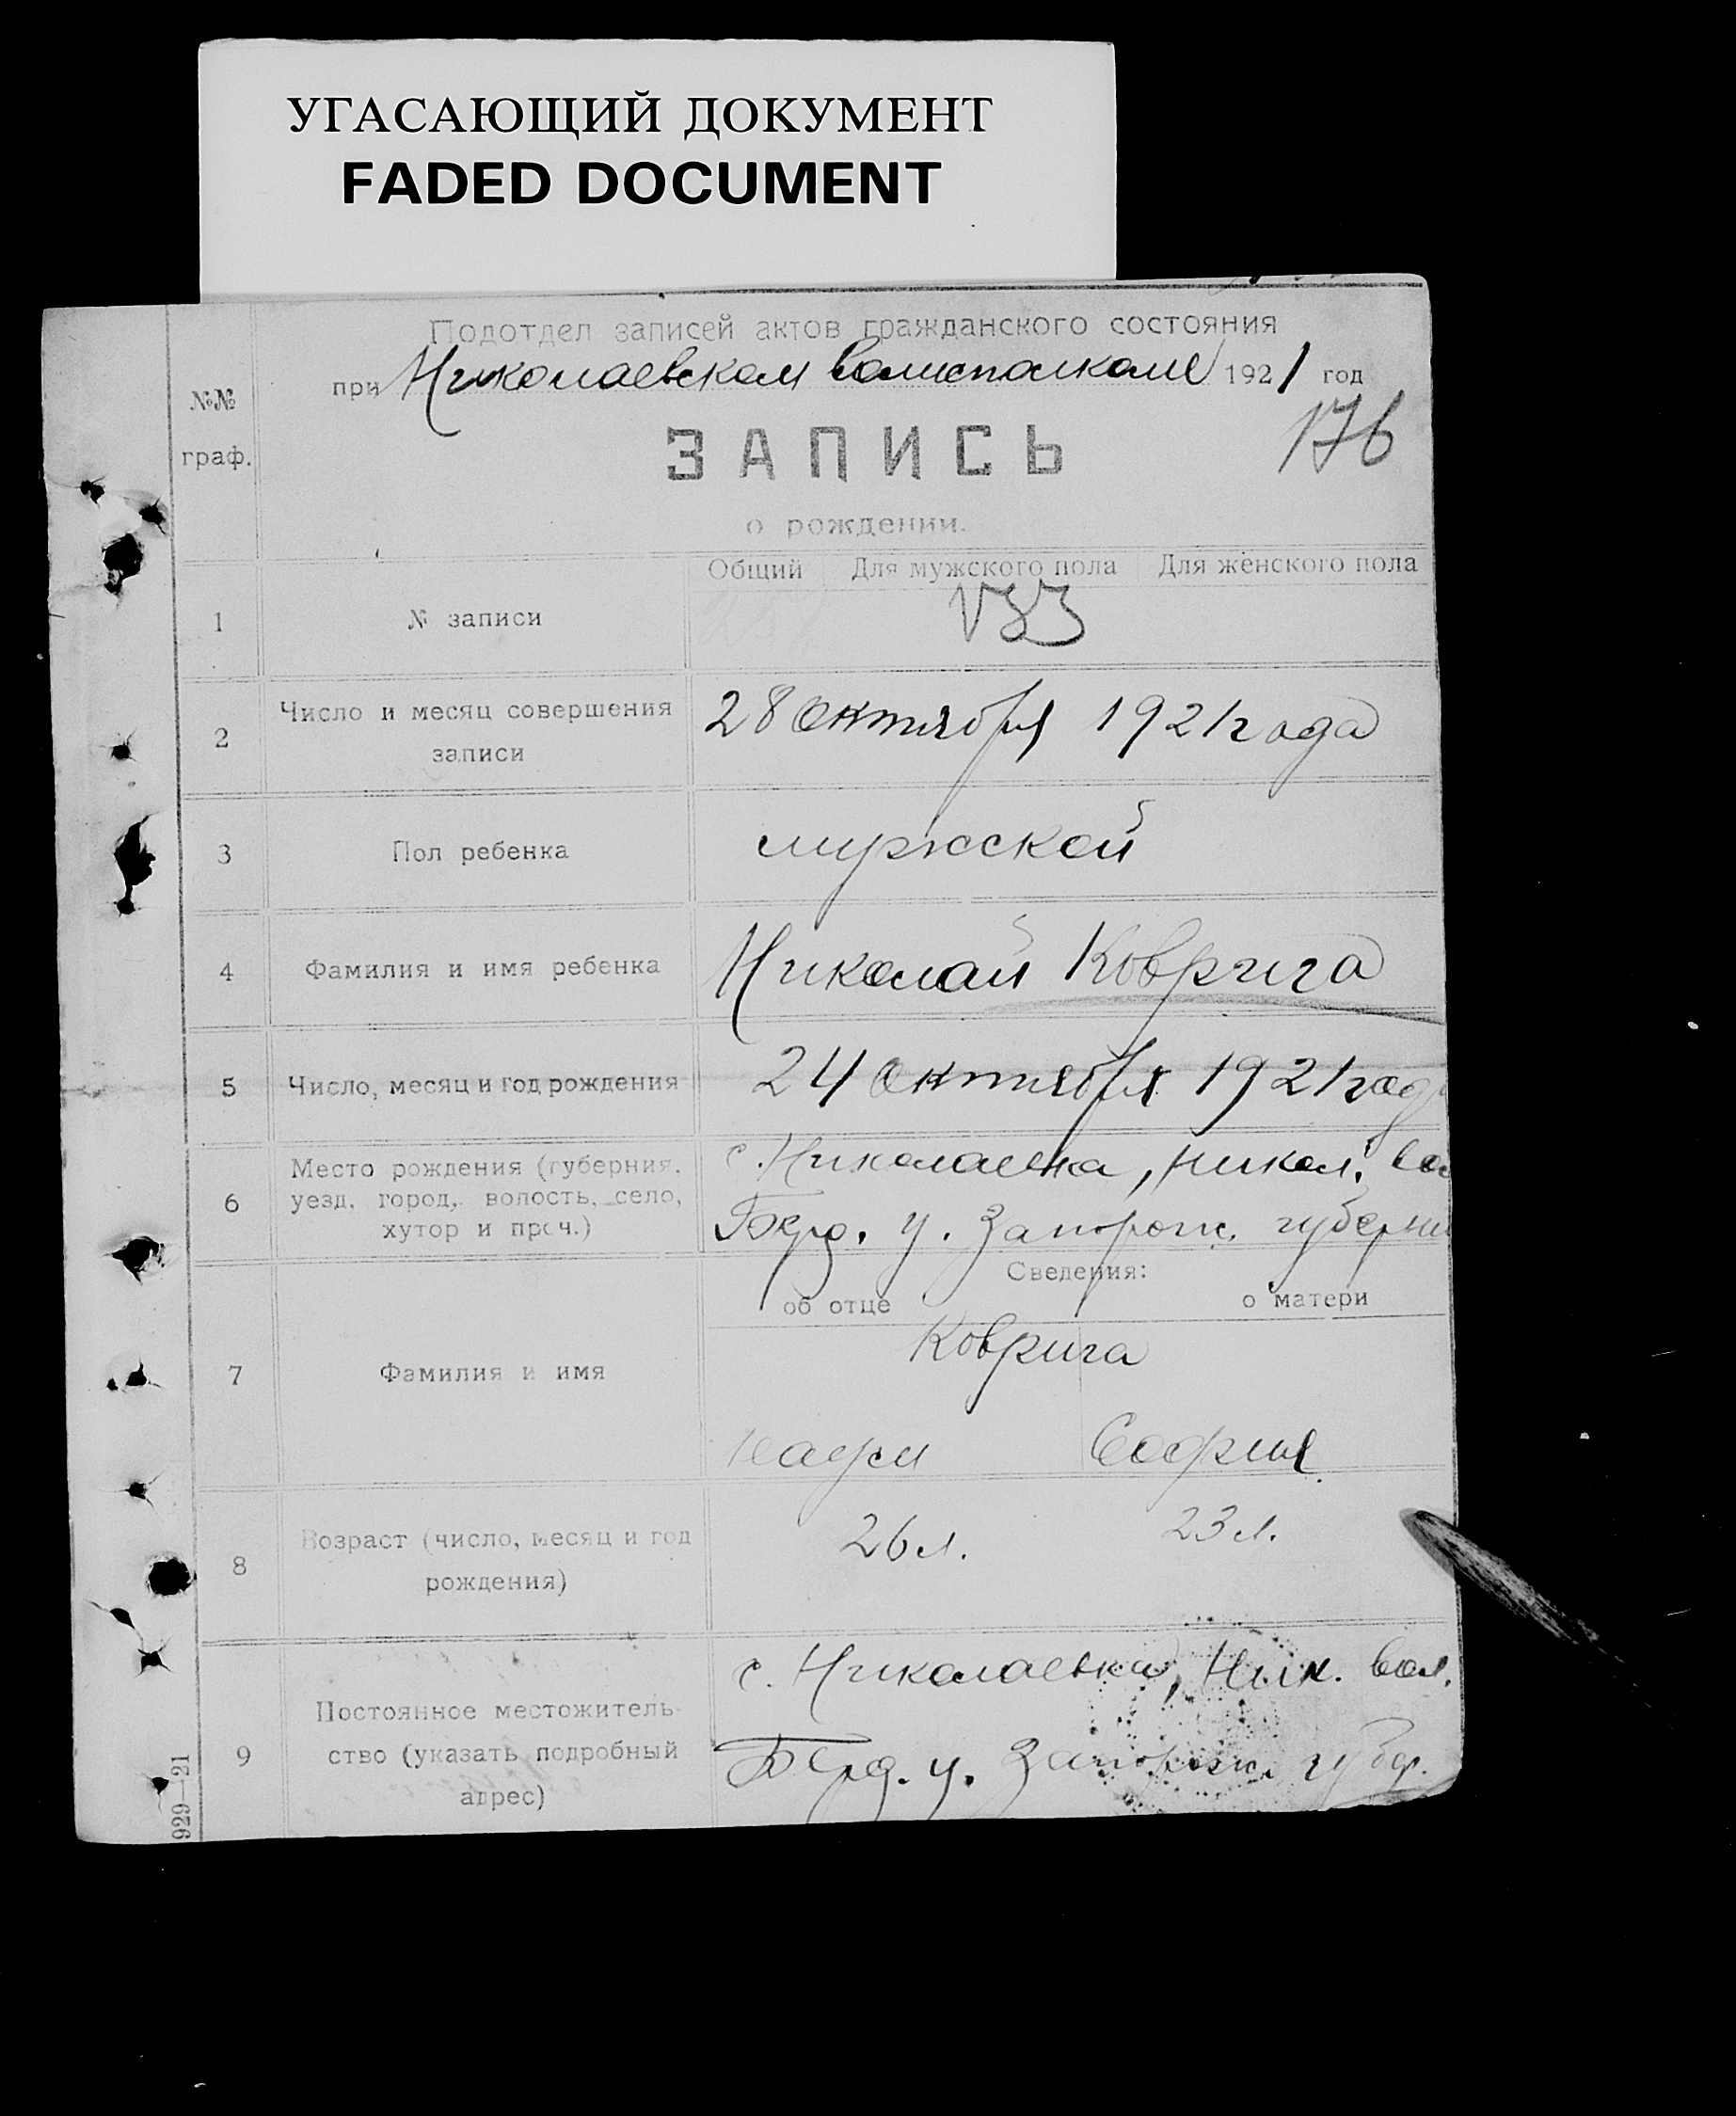 УГАСАЮЩИЙ ДОКУМЕНТ
FADED DOCUMENT
Подотдел записей актов гражданского состояния
при Николаевском Волисполкоме 1921 год
№№
граф.
176
ЗАПИСЬ
о рождении.
Общий Для мужского пола Для женского пола
1 № записи 133
2 Число и месяц совершения
записи
28 октября 1921 года
3 Пол ребенка мужской
4 Фамилия и имя ребенка Николай Коврига
5 Число, месяц и год рождения 24 октября 1921 год
6 Место рождения (губерния,
уезд, город, волость, село,
хутор и проч.)
с. Николаевка, Никол. вол
Берд. у. Запорож. губерни
Сведения:
об отце о матери
7 Фамилия и имя
Коврига
София
8 Возраст (число, месяц и год
рождения)
26 л. 23 л.
9 Постоянное местожитель-
ство (указать подробный
адрес)
с. Николаевка, Ник. вол.
Берд. у. Запорож. губер.
929—21